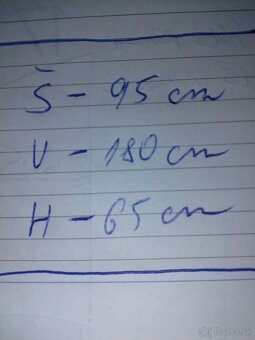 Š - 95 cm
V - 180 cm
H - 65 cm
Bazos.sk